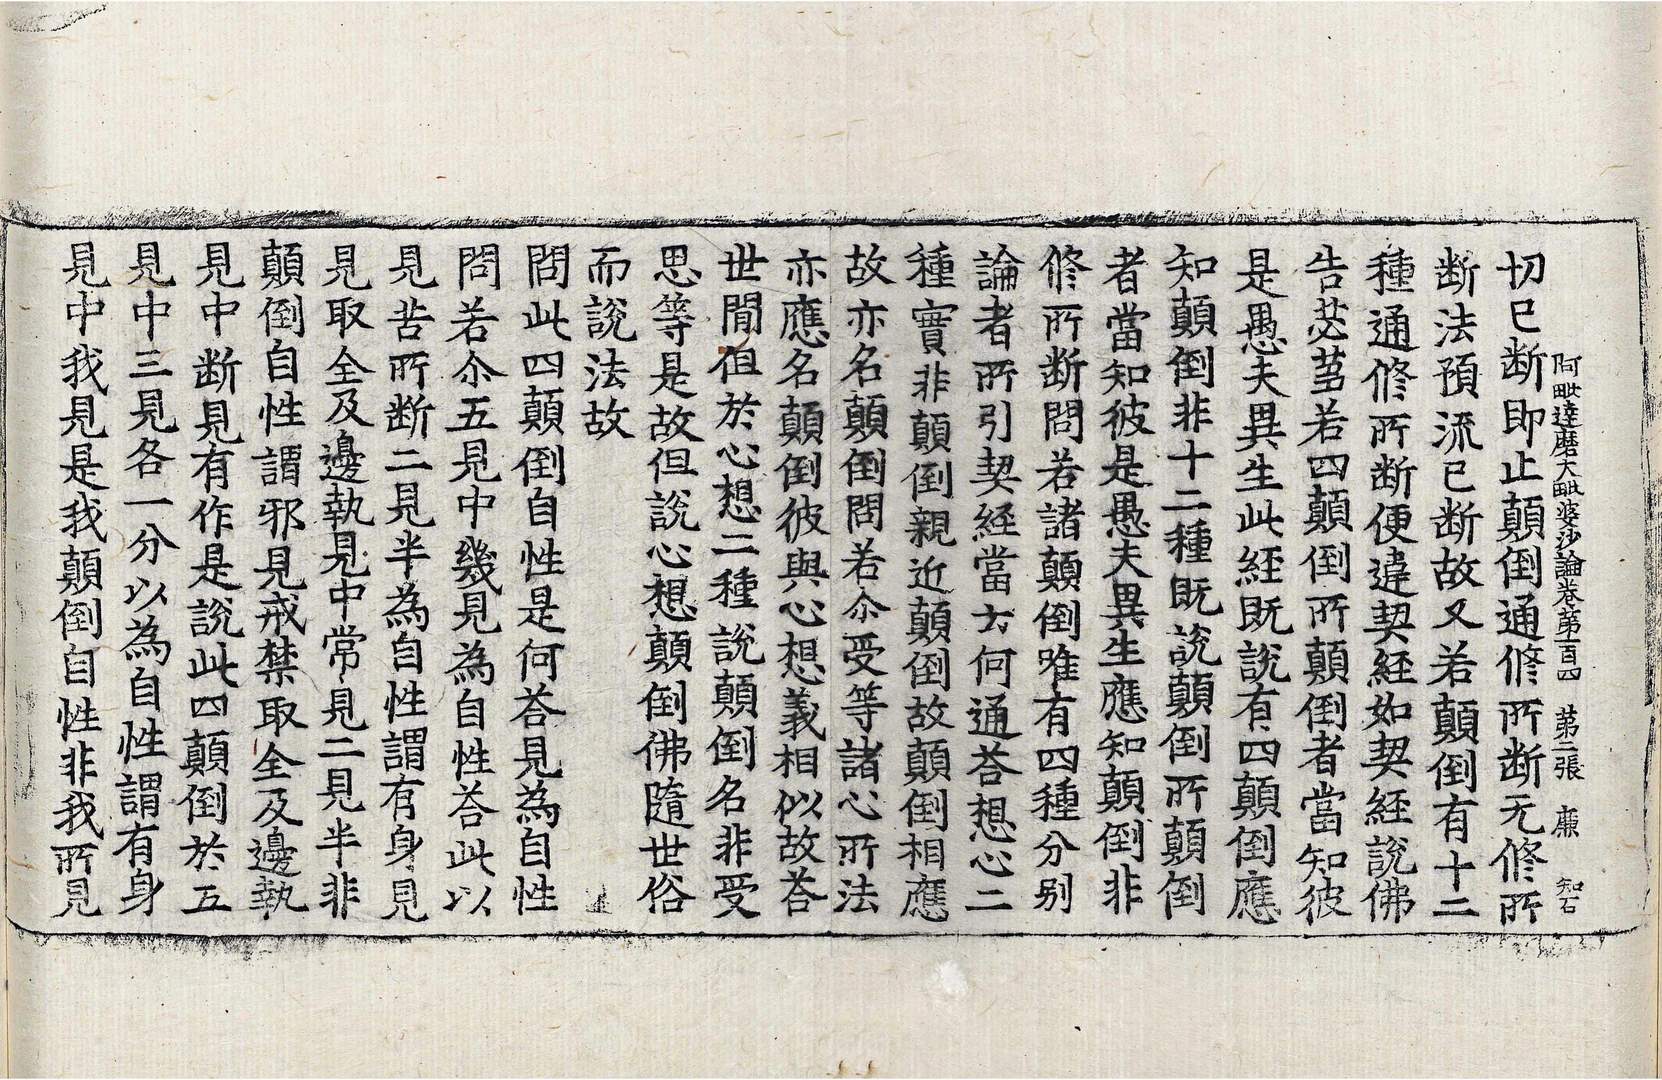 阿毗達磨大毗婆沙論卷第一百四 第二張 廉 知石
切已断即止顛倒通修所断无修所
断法預流已断故又若顛倒有十二
種通修所断便違契經如契經說佛
告苾蒭若四顛倒所顛倒者當知彼
是愚夫異生此經既說有四顛倒應
知顛倒非十二種既說顛倒所顛倒
者當知彼是愚夫異生應知顛倒非
修所断問若諸顛倒唯有四種分別
論者所引契經當云何通荅想心二
種實非顛倒親近顛倒故顛倒相應
故亦名顛倒問若尒受等諸心所法
亦應名顛倒彼與心想義相似故荅
世間但於心想二種說顛倒名非受
思等是故但說心想顛倒佛隨世俗
而說法故
問此四顛倒自性是何荅見為自性
問若尒五見中幾見為自性荅此以
見苦所断二見半為自性謂有身見
見取全及邊執見中常見二見半非
顛倒自性謂邪見戒禁取全及邊執
見中断見有作是說此四顛倒於五
見中三見各一分以為自性謂有身
見中我見是我顛倒自性非我所見